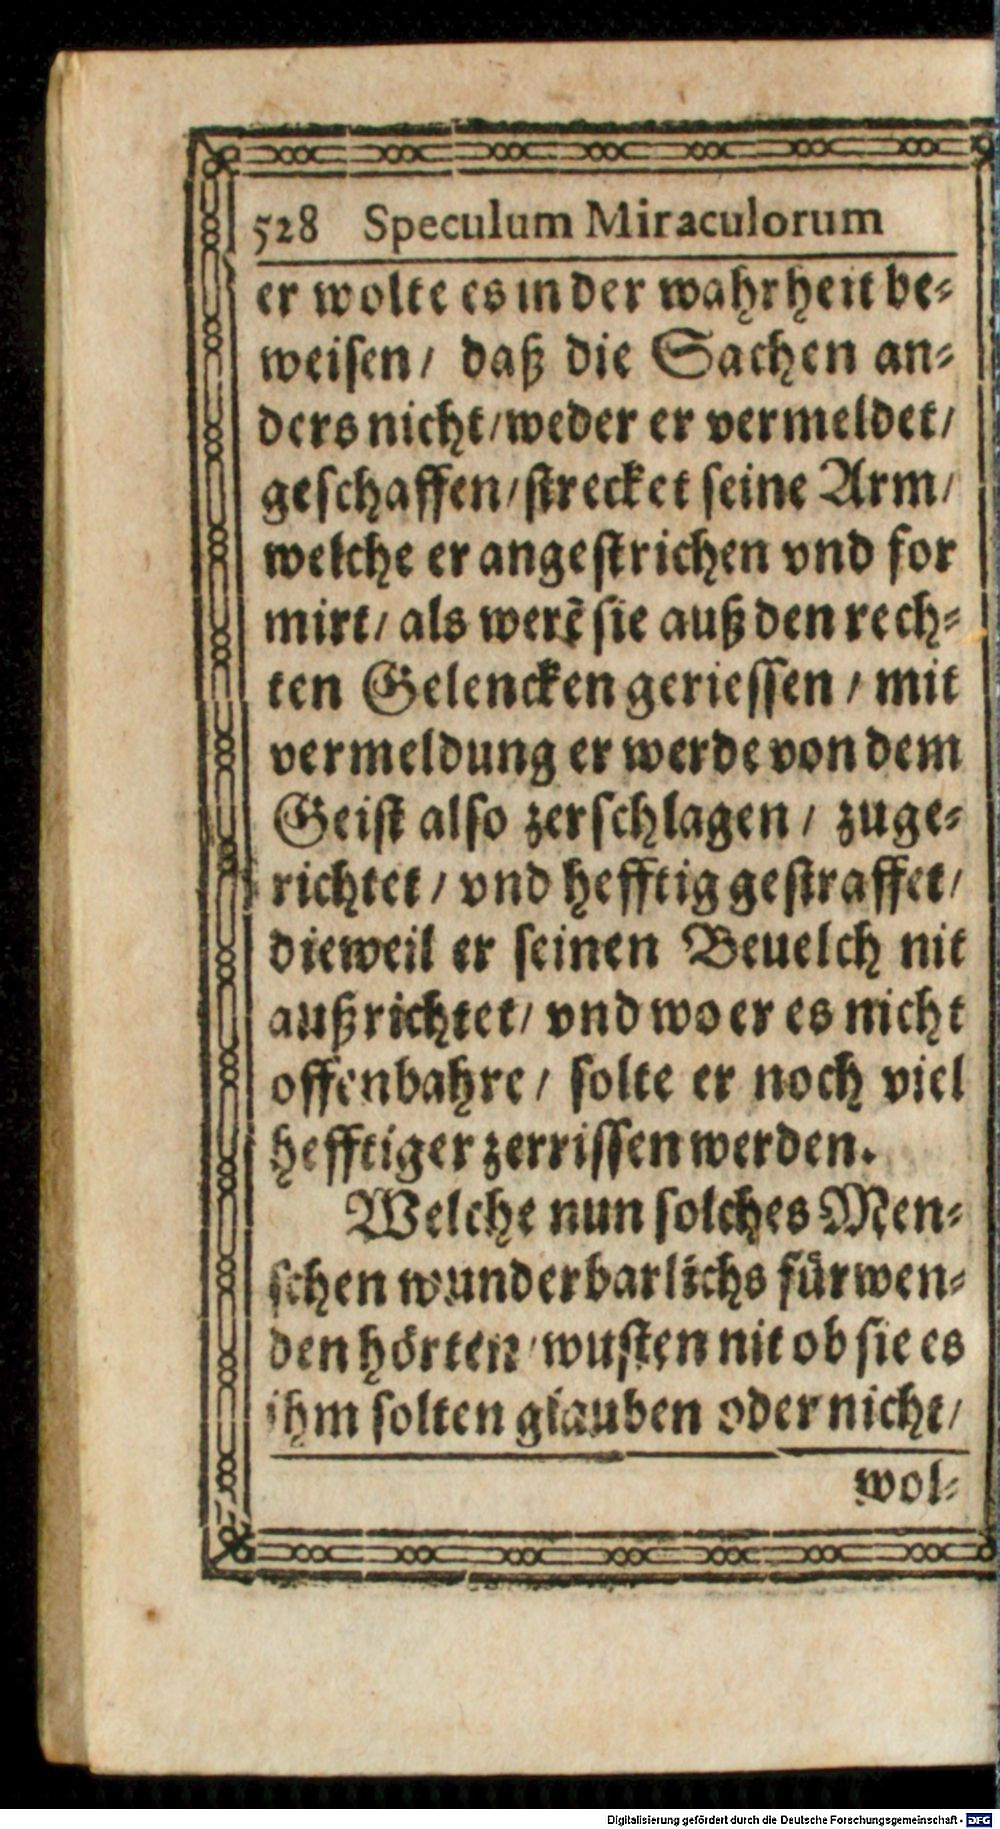 528 Speculum Miraculorum
er wolte es in der wahrheit be⸗
weisen/ daß die Sachen an⸗
ders nicht/weder er vermeldet/
geschaffen/strecket seine Arm/
welche er angestrichen vnd for
mirt/ als werẽ sie auß den rech⸗
ten Gelencken geriessen / mit
vermeldung er werde von dem
Geist also zerschlagen / zuge⸗
richtet / vnd hefftig gestraffet/
dieweil er seinen Beuelch nit
außrichtet/ vnd wo er es nicht
offenbahre / solte er noch viel
hefftiger zerrissen werden.
Welche nun solches Men⸗
schen wunderbarlichs fürwen⸗
den hörten/wusten nit ob sie es
ihm solten glauben oder nicht/
wol⸗
Digitalisierung gefördert durch die Deutsche Forschungsgemeinschaft - DFG